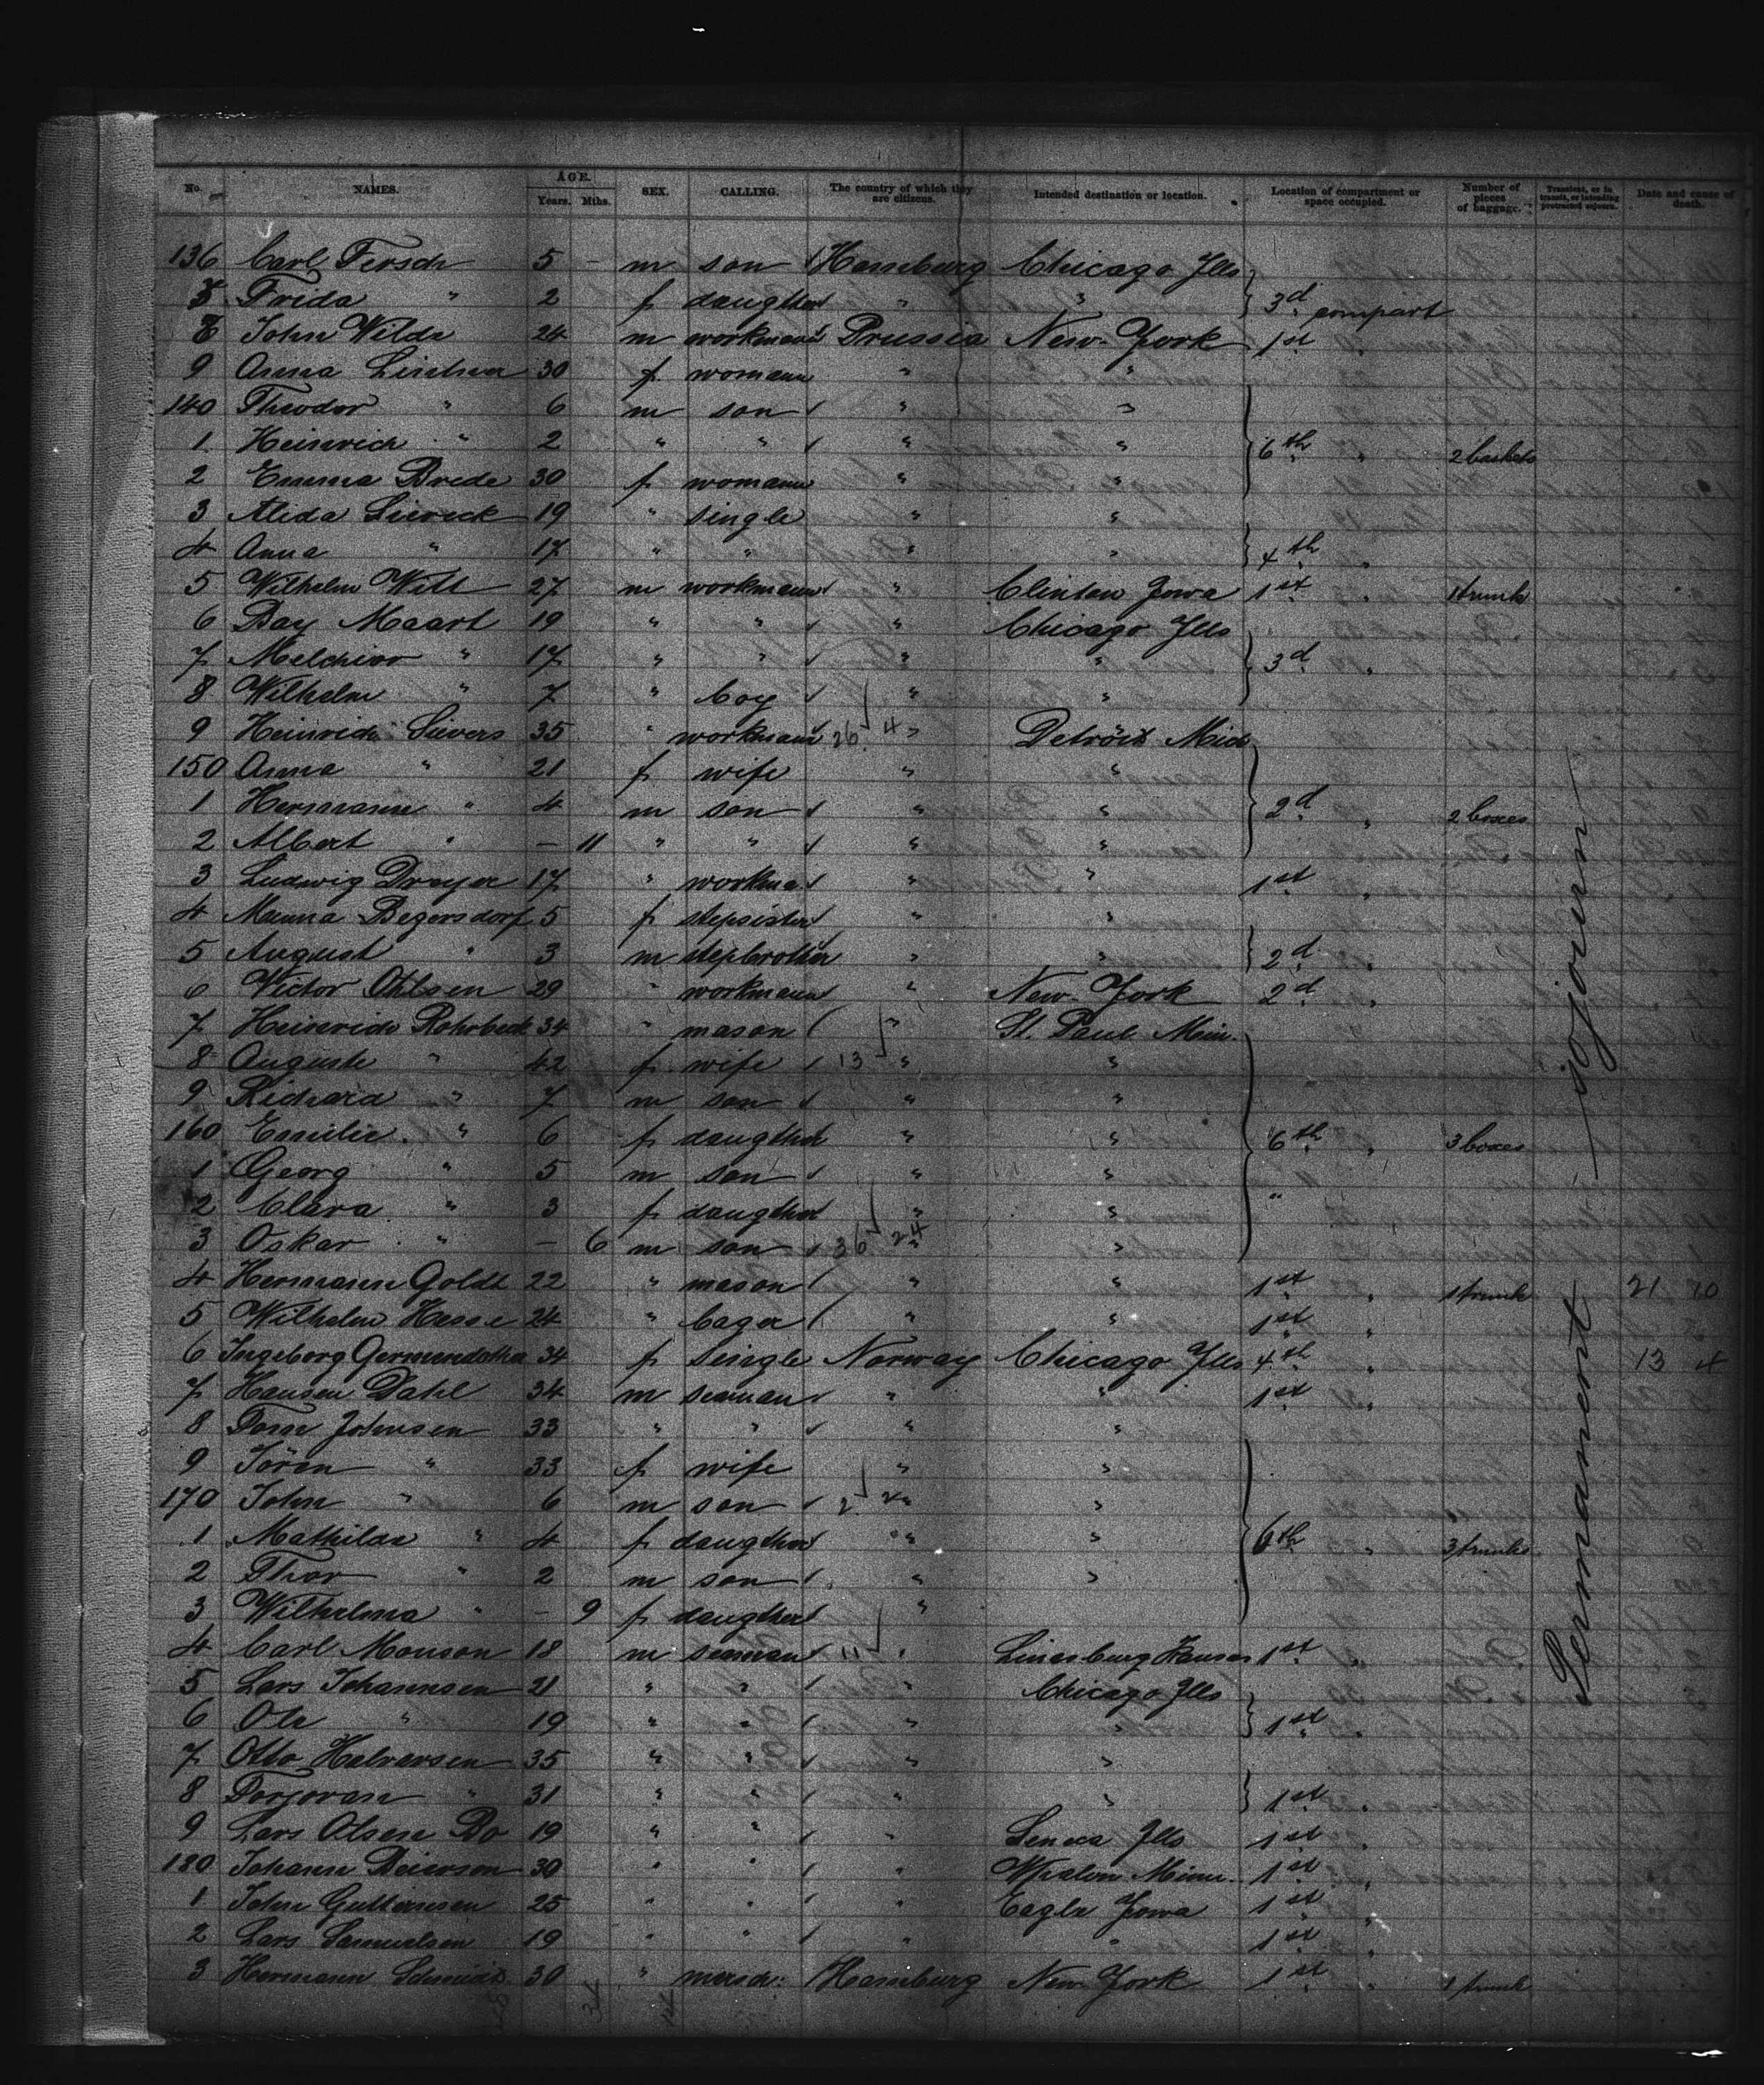 No. NAMES. AGE. Years. Mths. SEX. CALLING. The country of which they are citizens. Intended destination or location. Location of compartment or space occupied. Number of pieces of baggage. Transient, or in transit, or intending protracted sojourn. Date and cause of death.
136 Carl Fersch 5 - m son Hamburg Chicago Ills
7 Frida " 2 f daugther " " 3d compart
8 John Wilde 24 m workmann Prussia New-York 1st "
9 Anna Lindner 30 f womann " "
140 Theodor " 6 m son " "
1 Heinrich " 2 " " " " 6th " 2 baskets
2 Emma Brede 30 f womann " "
3 Alida Siereck 19 " single " "
4 Anna " 17 " " " " 4th "
5 Wilhelm Witt 27 m workmann " Clinton Iowa 1st " 1 trunk
6 Bay Maart 19 " " " Chicago Ills
7 Melchior " 17 " " " " 3d "
8 Wilhelm " 7 " boy " "
9 Heinrich Sievers 35 " workmann 26 4 " Detroit Mich
150 Anna " 21 f wife " "
1 Hermann " 4 m son " " 2d " 2 boxes
2 Albert " - 11 " " " "
3 Ludwig Dreyer 17 " workma " " 1st "
4 Manna Begersdorf 5 f stepsister " "
5 August " 3 m stepbrother " " 2d "
6 Victor Ohlsen 29 " workmann " New-York 2d "
7 Heinrich Rohrbeck 34 " mason " St. Paul Minn.
8 Auguste " 42 f wife 13 " "
9 Richard " 7 m son " "
160 Emilie " 6 f daugther " " 6th " 3 boxes
1 Georg " 5 m son " "
2 Clara " 3 f daugther " " "
3 Oskar " - 6 m son 36 24 " "
4 Hermann Goldt 22 " mason " " 1st " 1 trunk 21 10
5 Wilhelm Hesse 24 " " " 1st "
6 Ingeborg 34 f single Norway Chicago Ills 4th " 13 4
7 Hansen Dahl 34 m seaman " " 1st "
8 Tom Johnsen 33 " " " "
9 Sören " 33 f wife " "
170 John " 6 m son 2 " "
1 Mathilde " 4 f daugther " " 6th " 3 trunks
2 Thor " 2 m son " "
3 Wilhelma " - 9 f daugther "
4 Carl Monson 18 m seaman 11 " Kansas 1st "
5 Lars Johannsen 21 " " " Chicago Ills
6 Ole " 19 " " " " 1st "
7 Otto Halversen 35 " " " "
8 " 31 " " " " 1st "
9 Lars Olsen Bo 19 " " " Seneca Ills 1st "
180 Johann 30 " " " Whalen Minn. 1st "
1 John Guttormsen 25 " " " Eagle Iowa 1st "
2 Lars Samuelsen 19 " " " " 1st "
3 Hermann Schmidt 30 " mersch: Hamburg New-York 1st " 1 trunk
Permanent sojourn